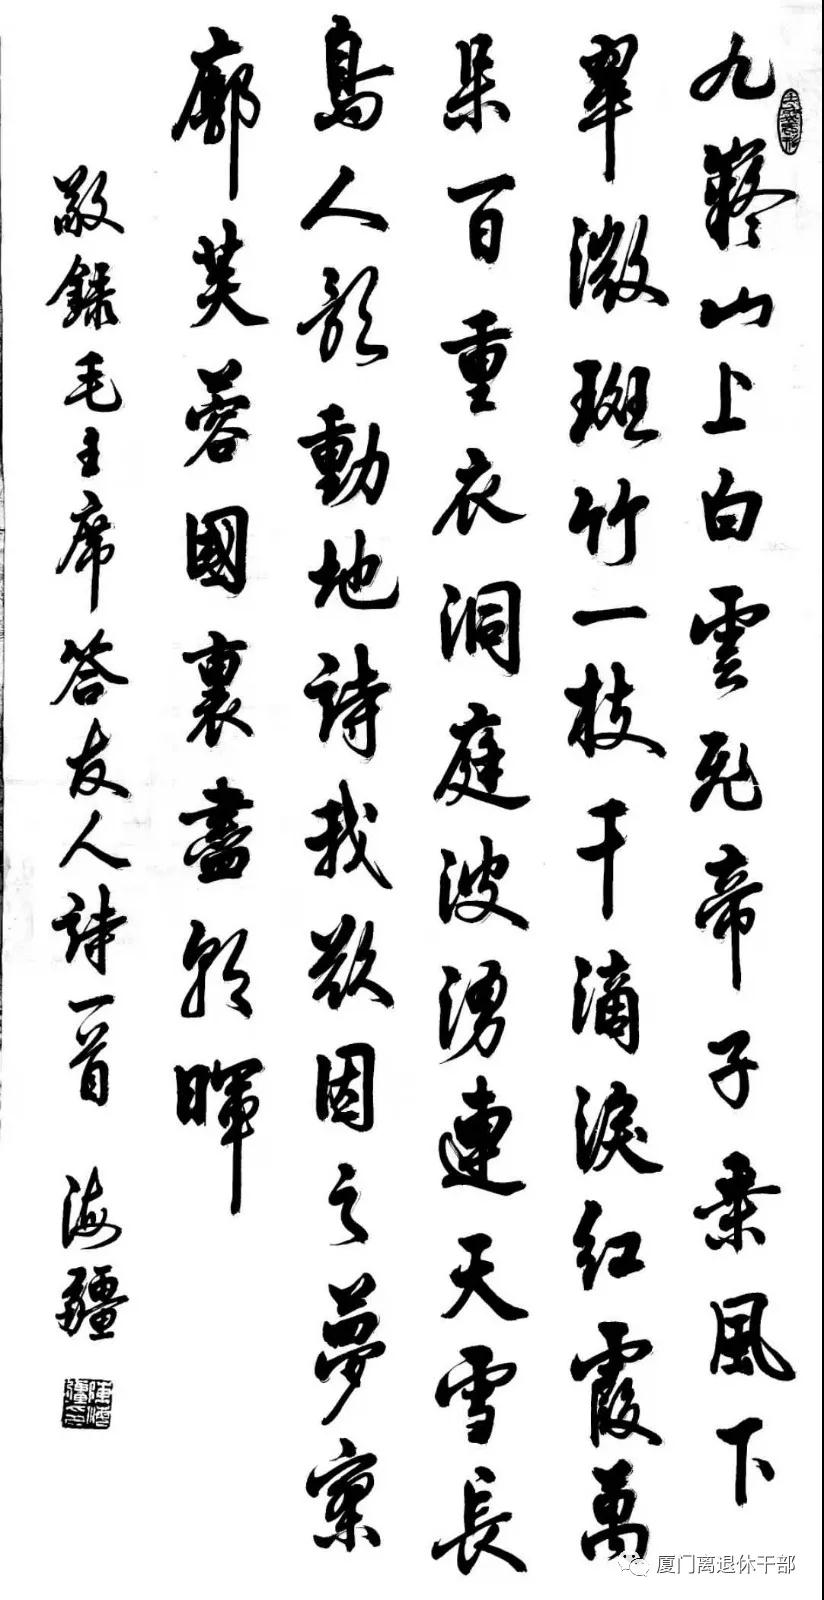 九嶷山上白雲飛帝子乘風下
翠微斑竹一枝千滴淚紅霞萬
朶百重衣洞庭波湧連天雪長
島人歌動地詩我欲因之夢寥
廓芙蓉國裏盡朝暉
敬錄毛主席答友人詩一首 海疆
厦门离退休干部